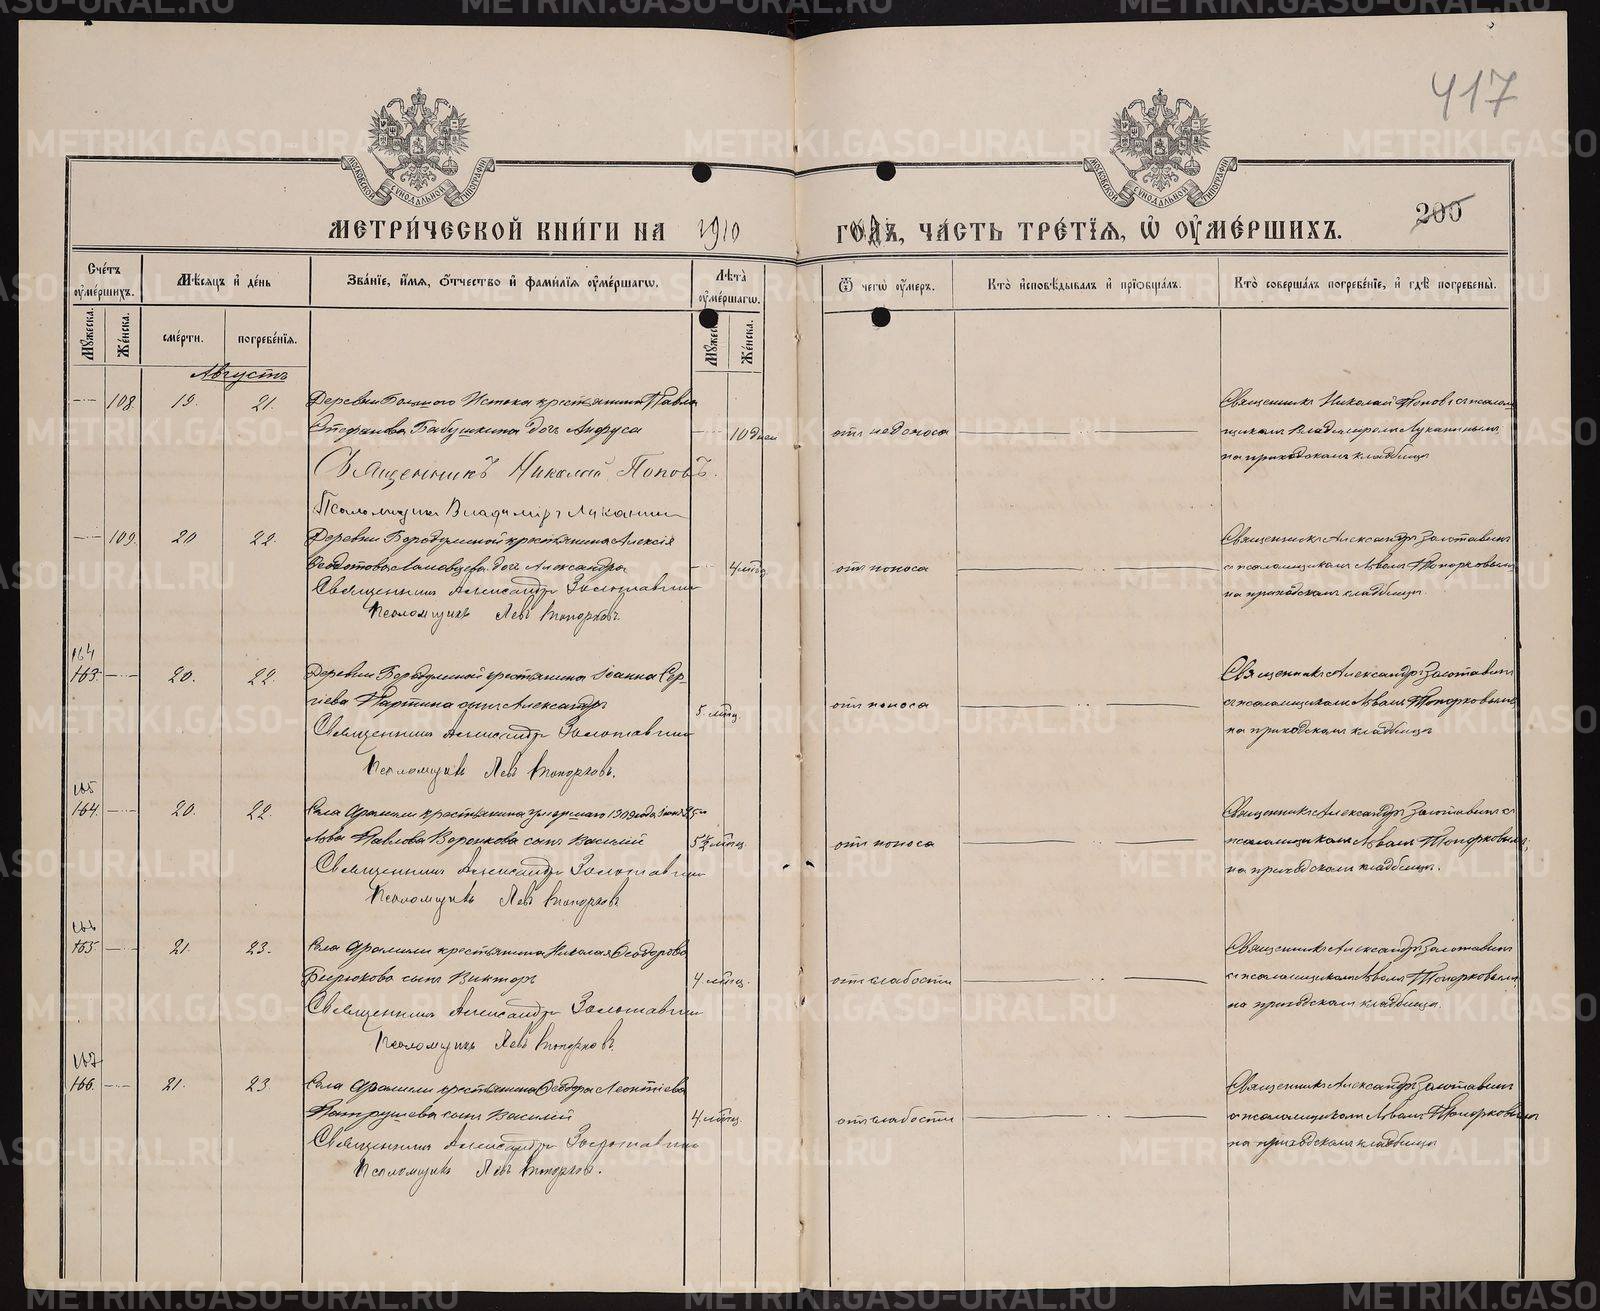 417
МОСКОВСКОЙ СѴНОДАЛЬНОЙ ТИПОГРАФІИ
МОСКОВСКОЙ СѴНОДАЛЬНОЙ ТИПОГРАФІИ
200
МЕТРИ́ЧЕСКОЙ КНИ́ГИ НА 1910 ГОДЪ, ЧА́СТЬ ТРЕ́ТІѦ, Ѡ ОУМЕ́РШИХЪ.
Сче́тъ оуме́ршихъ.
Мѣсяцъ и де́нь
Зва́ніе, и́мѧ, ѻ́тчество и фами́лїѧ оуме́ршагѡ.
Лѣта̀ оуме́ршагѡ.
Ѿ чегѡ̀ оу́меръ.
Кто̀ и҆сповѣ́дывалъ и҆ прїобща́лъ.
Кто̀ соверша́лъ погребе́нїе, и҆ гдѣ̀ погребены̀.
Мꙋ́жеска.
Же́нска.
сме́рти.
погребе́нїѧ.
Мꙋ́жеска.
Же́нска.
Августъ
108. 19. 21. Деревни Большого Истока крестьянина Павла
Стефанова Бабушкина дочь Анфуса 10 дней
Священникъ Николай Поповъ.
Псаломщикъ Владимиръ Луканинъ
отъ недоноса
Священникъ Николай Поповъ съ псалом
щикомъ Владимиромъ Луканинымъ
на приходскомъ кладбищѣ
109. 20 22. Деревни Бородулиной крестьянина Алексія
Ѳеодотова Ломовцева дочь Александра 4 мѣсц
Священникъ Александръ Золотавинъ
Псаломщикъ Левъ Топорковъ.
отъ поноса
Священникъ Александръ Золотавинъ
съ псаломщикомъ Львомъ Топорковымъ
на приходскомъ кладбищѣ.
164
163. 20. 22. Деревни Бородулиной крестьянина Іоанна Сер-
гіева Партина сынъ Александръ 5. мѣсц.
Священникъ Александръ Золотавинъ
Псаломщикъ Левъ Топорковъ.
отъ поноса
Священникъ Александръ Золотавинъ
съ псаломщикомъ Львомъ Топорковымъ
на приходскомъ кладбищѣ
165
164. 20. 22. Села Арамили крестьянина умершаго 1909 года
Льва Павлова Воронкова сынъ Василій 5½ мѣсц.
Священникъ Александръ Золотавинъ
Псаломщикъ Левъ Топорковъ
отъ поноса
Священникъ Александръ Золотавинъ съ
псаломщикомъ Львомъ Топорковымъ,
на приходскомъ кладбищѣ.
166
165. 21. 23. Села Арамили крестьянина Николая Ѳеодорова
Бирюкова сынъ Викторъ 4 мѣсц.
Священникъ Александръ Золотавинъ
Псаломщикъ Левъ Топорковъ.
отъ слабости
Священникъ Александръ Золотавинъ
съ псаломщикомъ Львомъ Топорковымъ
на приходскомъ кладбищѣ.
167
166. 21. 23 Села Арамили крестьянина Ѳеодора Леонтіева
Патрушева сынъ Василій 4. мѣсц.
Священникъ Александръ Золотавинъ
Псаломщикъ Левъ Топорковъ.
отъ слабости
Священникъ Александръ Золотавинъ
съ псаломщикомъ Львомъ Топорковымъ
на приходскомъ кладбищѣ
METRIKI.GASO-URAL.RU